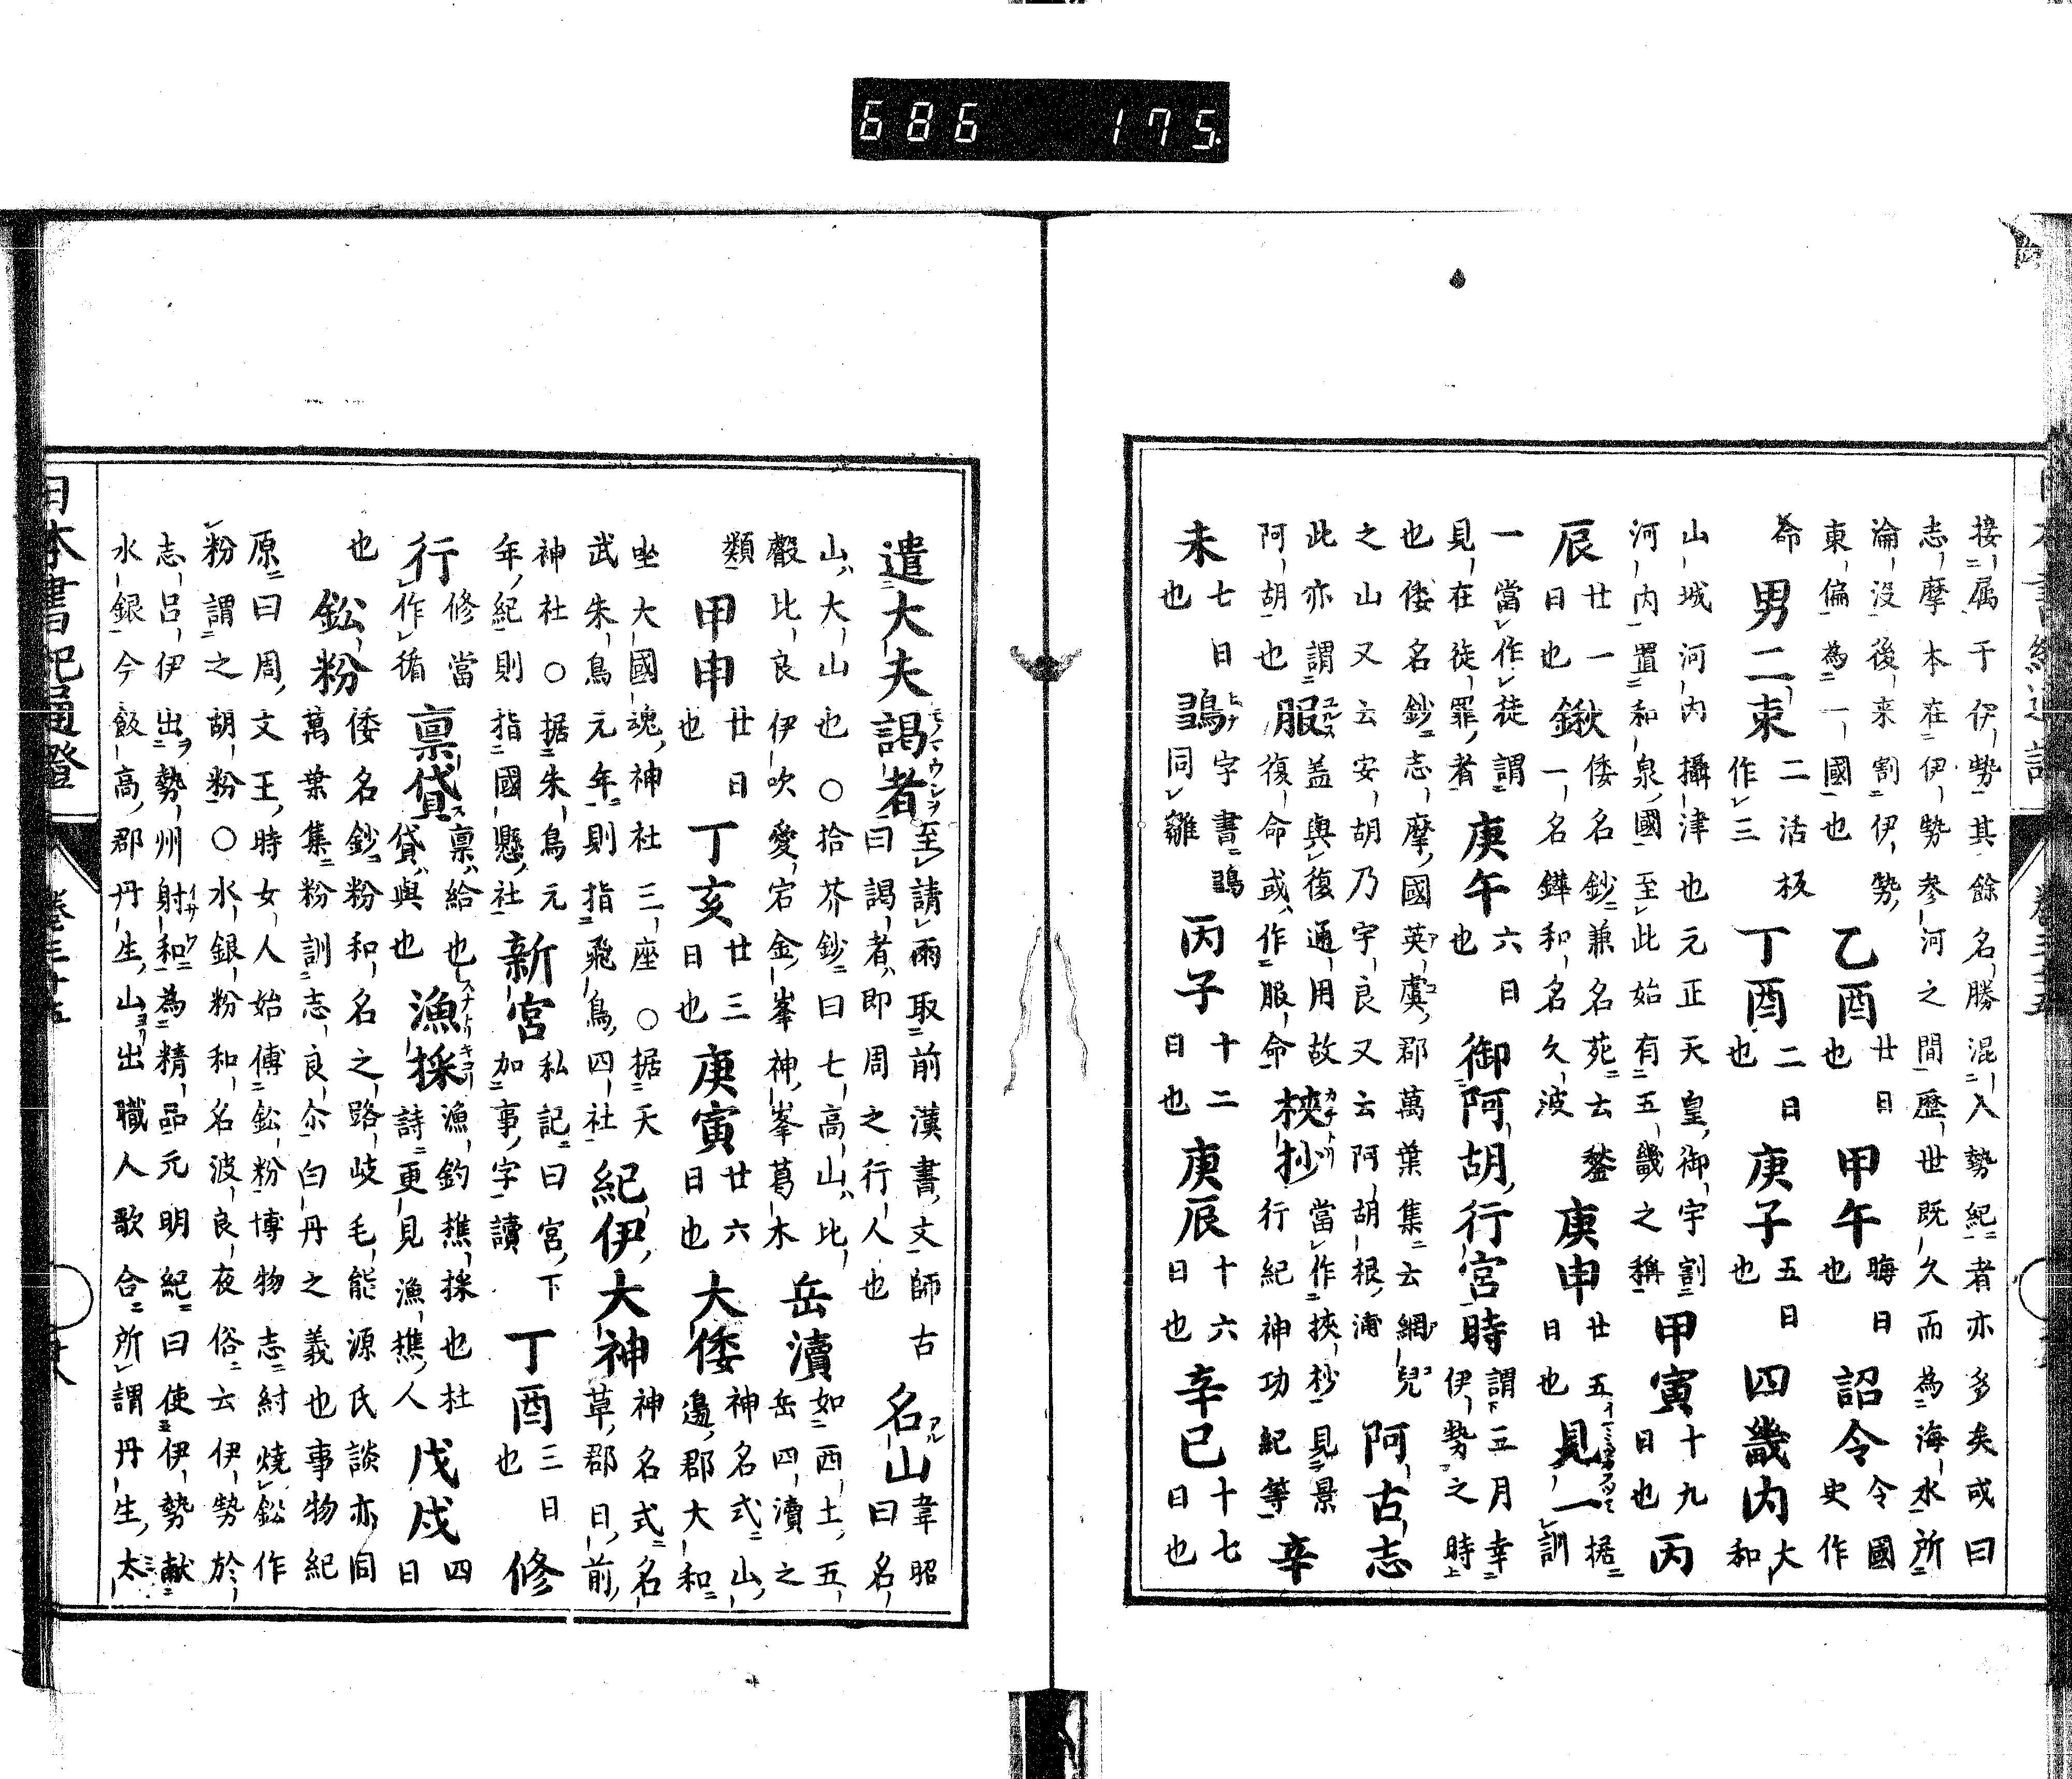 接属于伊勢其餘名勝混入勢紀者亦多矣或曰
志摩本在伊勢參河之間歷世既久而為海水所
淪沒後来割伊勢
東偏為一國也 乙酉 廿日也 甲午 晦日也 詔令 令國史作
命 男二束 二活板作三 丁酉 二日也 庚子 五日也 四畿内 大和
山城河内攝津也元正天皇御宇割
河内置和泉國至此始有五畿之稱 甲寅 十九日也 丙
辰 廿一日也 鍬 倭名鈔兼名苑云鍫一名鏵和名久波 庚申 廿五日也 見一 据訓
一當作徒謂
見在徒罪者 庚午 六日也 御阿胡行宮時 謂五月幸伊勢之時
也倭名鈔志摩國英虞郡萬葉集云網兒
之山又云安胡乃宇良又云阿胡根浦 阿古志
此亦謂
阿胡也 服 盖與復通用故復命或作服命 挾抄 當作挾杪見景行紀神功紀等 辛
未 七日也 鶵 字書鶵同雛 丙子 十二日也 庚辰 十六日也 辛巳 十七日也
遣大夫謁者 至請雨取前漢書文師古曰謁者即周之行人也 名山 韋昭曰名
山大山也○拾芥鈔曰七高山比
叡比良伊吹愛宕金峯神峯葛木 岳瀆 如西土五岳四瀆之
類 甲申 廿日也 丁亥 廿三日也 庚寅 廿六日也 大倭 神名式山邊郡大和
坐大國魂神社三座○据天
武朱鳥元年則指飛鳥四社 紀伊大神 神名式名草郡日前
神社○据朱鳥元
年紀則指國懸社 新宮 私記曰宮下加事字讀 丁酉 三日也 修
行 修當作循 稟貸 稟給也貸與也 漁採 漁釣樵採也杜詩更見漁樵人 戊戌 四日
也 鈆粉 倭名鈔粉和名之路岐毛能源氏談亦同
萬葉集粉訓志良尒白丹之義也事物紀
原曰周文王時女人始傅鈆粉博物志紂燒鈆作
粉謂之胡粉○水銀粉和名波良夜俗云伊勢於
志呂伊出勢州射和為精品元明紀曰使伊勢献
水銀今飯高郡丹生山出職人歌合所謂丹生太
日本書紀通證
686 175